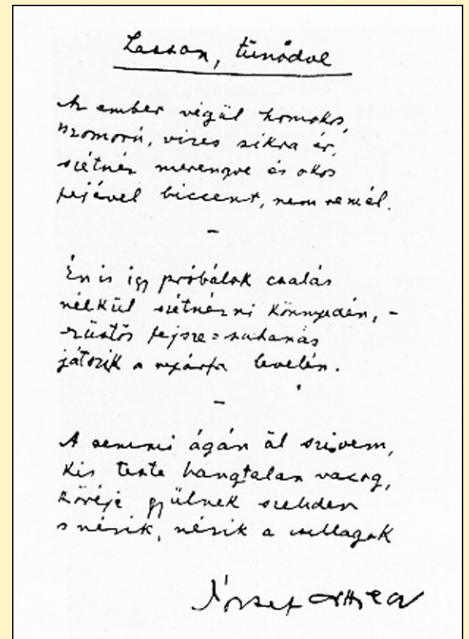 Lassan, tünődve
Az ember végül homokos,
szomorú, vizes sikra ér,
szétnéz merengve és okos
fejével biccent, nem remél.
–
Én is így próbálok csalás
nélkül szétnézni könnyedén, –
ezüstös fejsze=suhanás
játszik a nyárfa levelén.
–
A semmi ágán ül szivem,
kis teste hangtalan vacog,
köréje gyülnek szeliden
s nézik, nézik a csillagok
József Attila